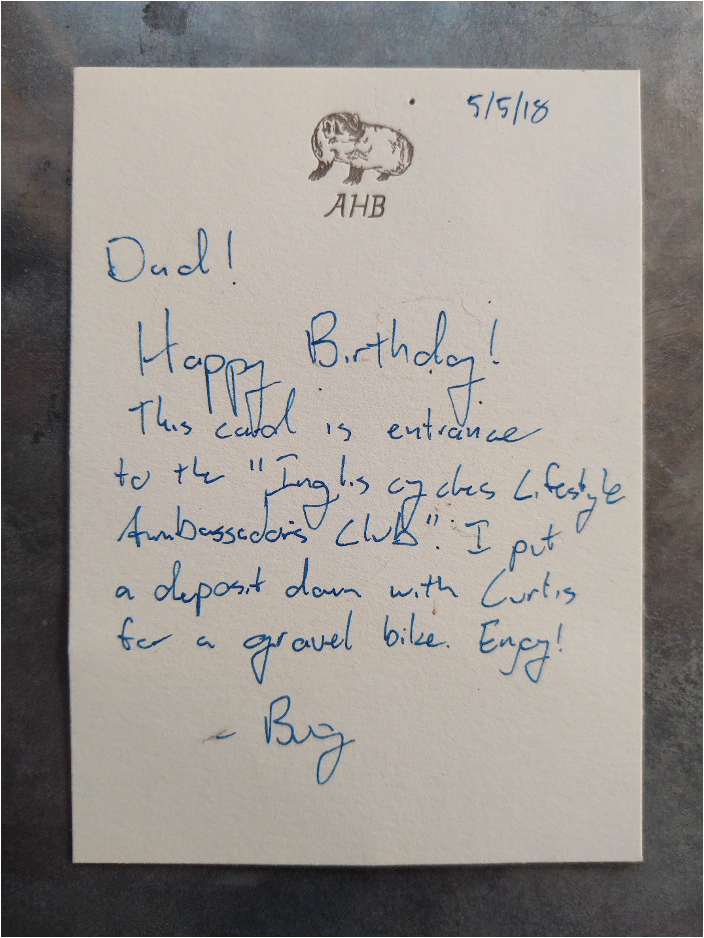 5/5/18
AHB
Dad!
Happy Birthday!
This card is entrance
to the "Inglis cycles Lifestyle
Ambassadors Club". I put
a deposit down with Curtis
for a gravel bike. Enjoy!
-